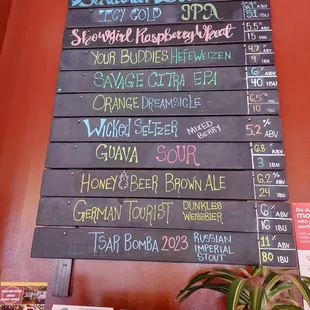 ICY COLD IPA
51 IBU
Showgirl Raspberry Wheat
5.5% ABV
15 IBU
YOUR BUDDIES HEFEWEIZEN
4.7 ABV
9 IBU
SAVAGE CITRA EPA
6% ABV
40 IBU
ORANGE DREAMSICLE
6.5% ABV
10 IBU
WICKED SELTZER MIXED BERRY
5.2% ABV
GUAVA SOUR
6.8 ABV
3 IBU
HONEY BEER BROWN ALE
6.2 ABV
24 IBU
GERMAN TOURIST DUNKLES WEISSBIER
6% ABV
16 IBU
TSAR BOMBA 2023 RUSSIAN IMPERIAL STOUT
11% ABV
80 IBU